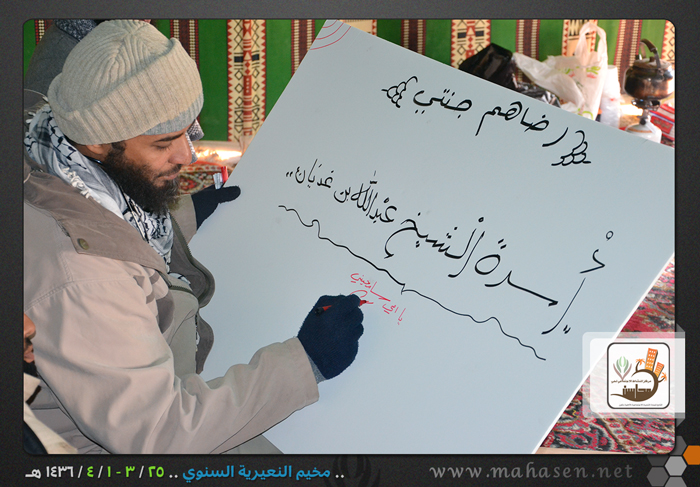 رضاهم جنتي
أسرة الشيخ عبدالله بن غديان..
.. مخيم النعيرية السنوي .. ٢٥ / ٣ - ١ / ٤ / ١٤٣٦ هـ
www.mahasen.net
محاسن